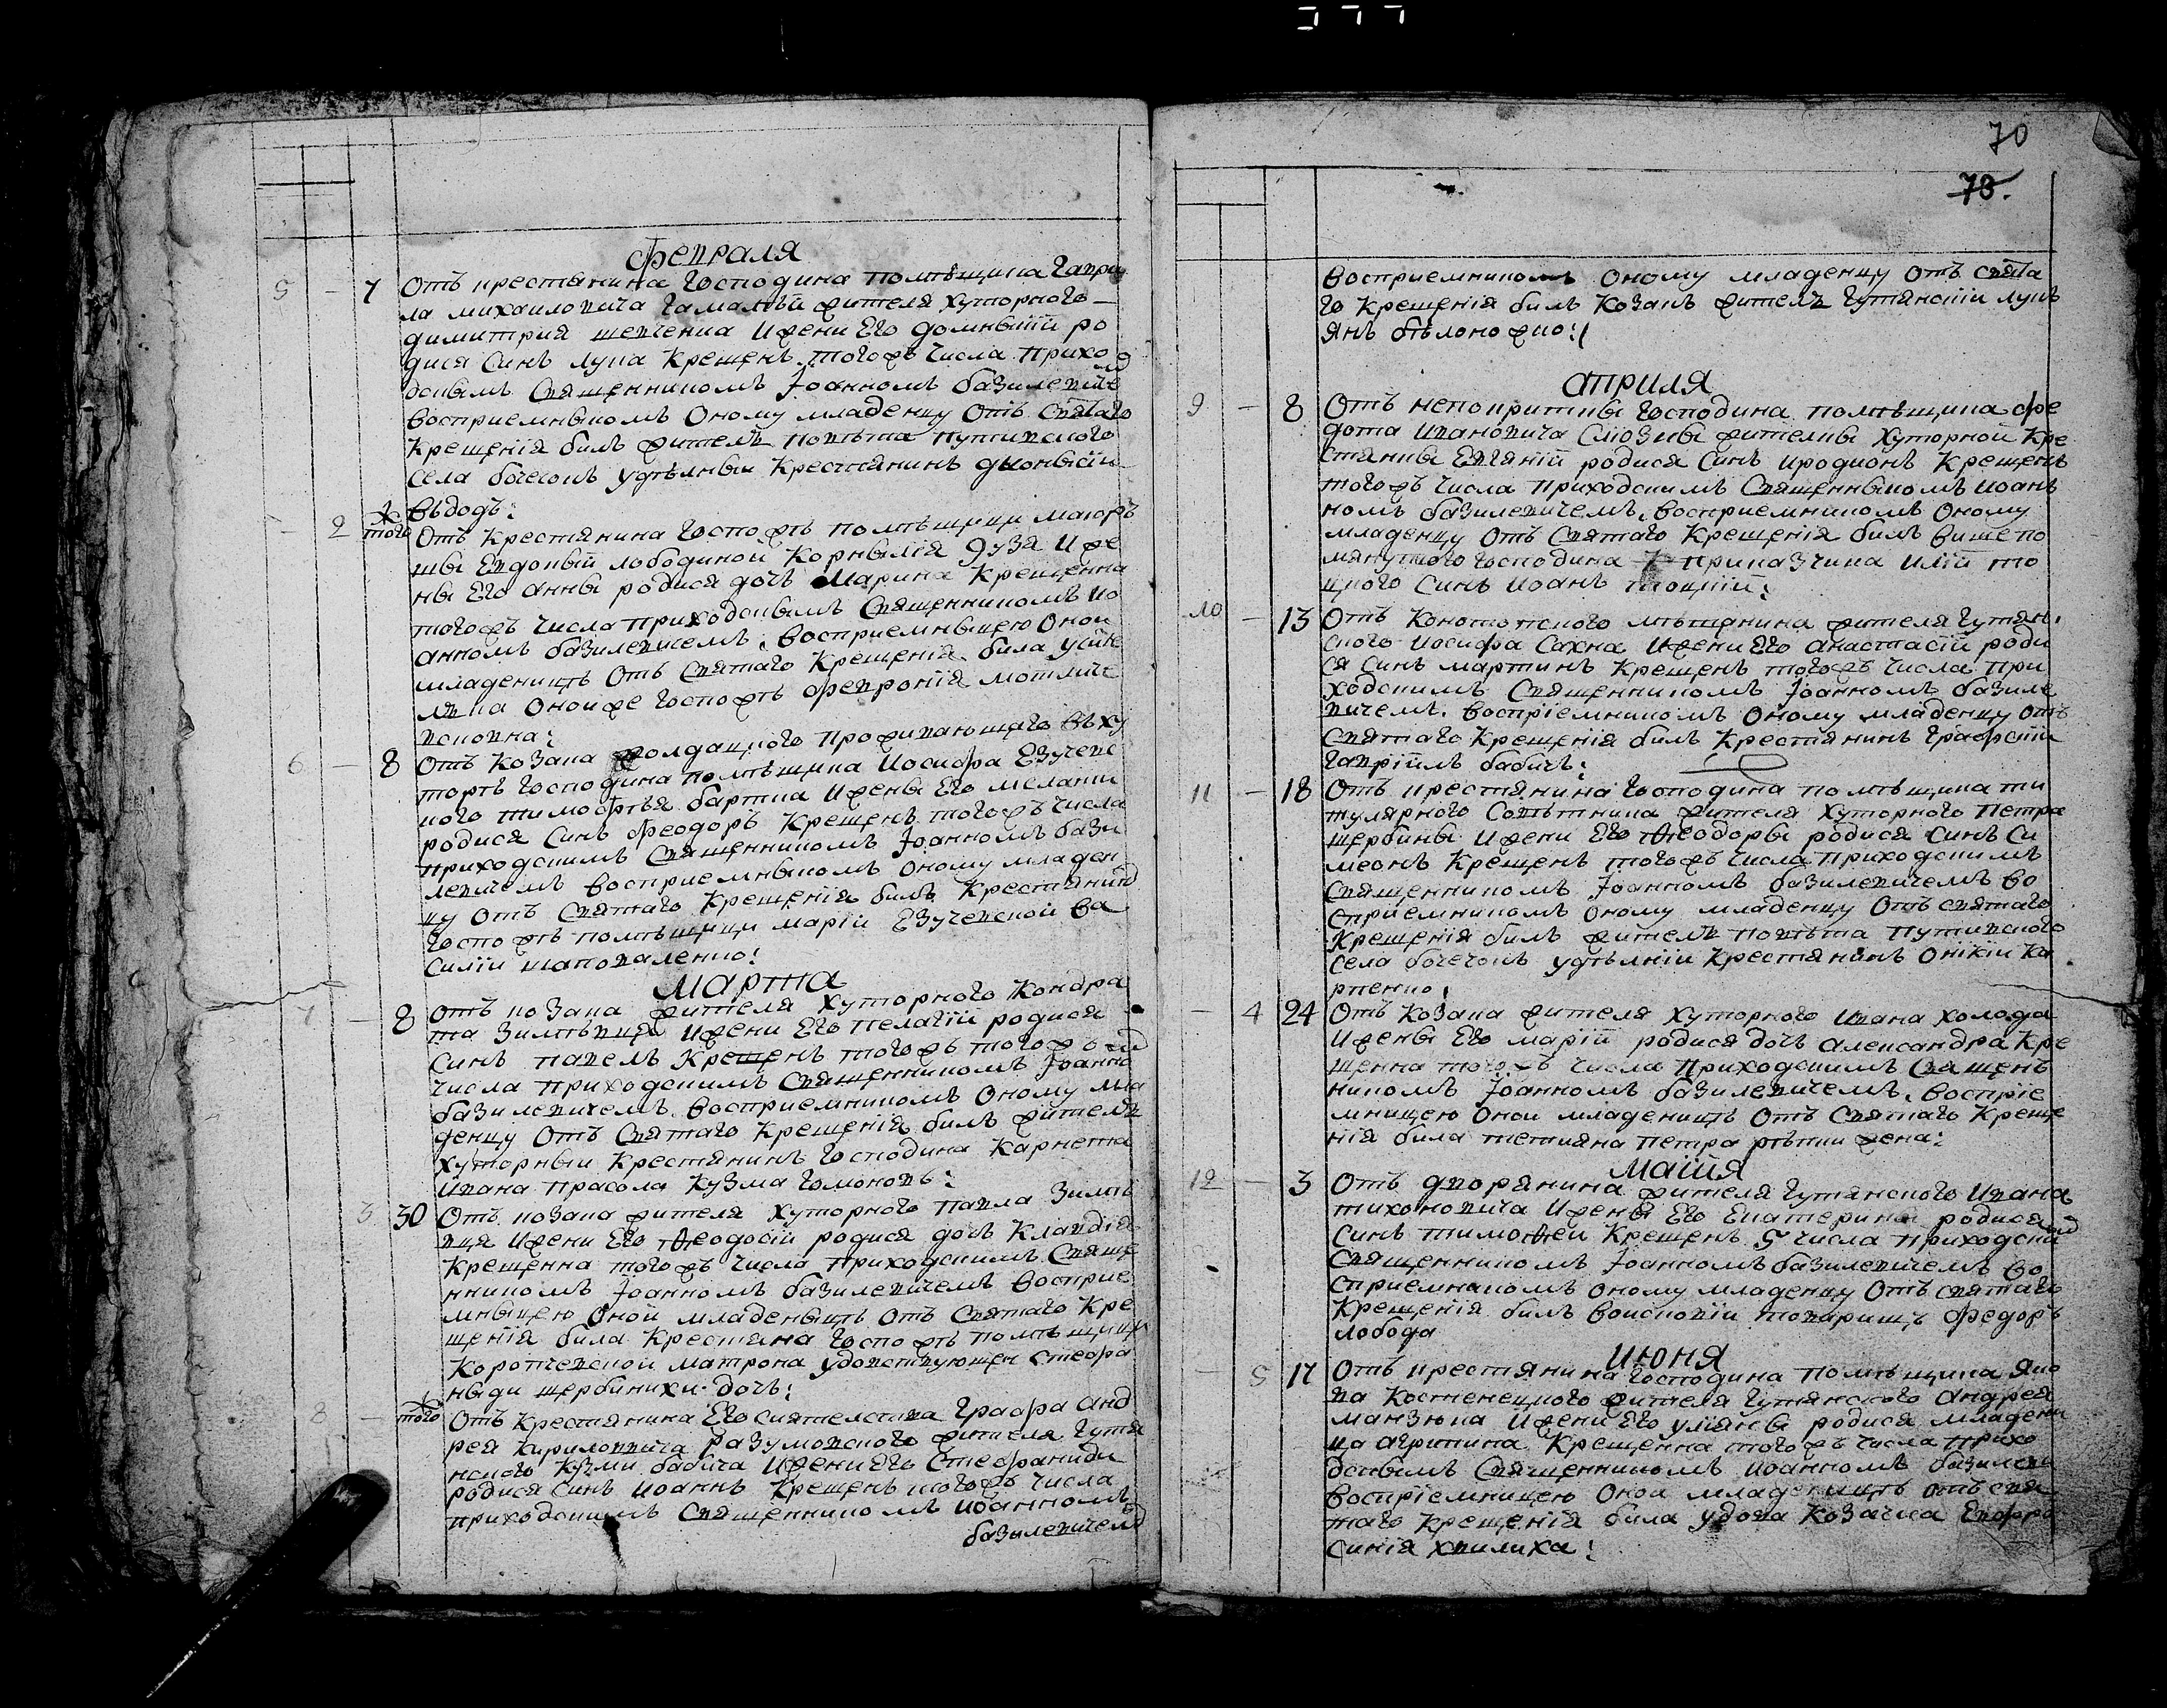 70
73.
февраля
5 - 7 Отъ крестьянина Господина помѣщика Гаври
ла михаиловича Гамалѣй жителя хуторного
димитрия шевченка Ижени Его домнѣкіи ро
дися Синъ лука Крещенъ тогожъ числа прихо
дскымъ Священникомъ Іоанномъ базилевиче
восприемныкомъ Оному младенцу Отъ Святаго
Крещенія билъ житель повѣта путивлского
села бочечокъ удѣлныи Крестянинъ
- 2 того Отъ Крестянина Госпожѣ помѣщици маіор
ши Евдокіи лободиной Корнилія Дузя Иже
ны Его Анны родися дочъ Марина Крещенна
тогожъ числа приходскымъ Священникомъ Ио
анномъ базилевичемъ. восприемныцею Оной
младеницѣ Отъ Святаго Крещенія била
Онойже Госпожѣ февронія
6 - 8 Отъ Козака проживающаго въ ху
торѣ Господина помѣщика Иосифа Езучевс
кого тимофѣя бартка Ижены Его мелании
родися Синъ феодоръ Крещенъ тогожъ числа
приходскимъ Священникомъ Іоанномъ бази
левичемъ восприемныкомъ Оному младен
цу Отъ Святаго Крещенія билъ Крестянинъ
Госпожѣ помѣщици маріи Езучевской Ва
силіи шаповаленко:
марта
7 - 8 Отъ козака жителя хуторного Кондра
та Зимѣвця Ижени Его пелагіи родися
Синъ павелъ Крещенъ тогожъ тогожъ
числа приходскимъ Священникомъ Іоанно
базилевичемъ. восприемникомъ Оному мла
денцу Отъ Святаго Крещенія билъ житель
хуторныи Крестянинъ Господина Карнета
Ивана прасола Кузма Гомоновъ:
3 30 Отъ козака жителя хуторного павла Зимѣ
вця Ижени Его Ѳеодосіи родися дочъ Клавдія
Крещенна тогожъ числа приходскимъ Свяще
нникомъ Іоанномъ базилевичемъ восприе
мныцею Оной младеныцѣ Отъ Святаго Кре
щенія била Крестянка Госпожѣ помѣщици
Коропчевской матрона удовствующеи Стефа
ныди щербинихи дочъ:
8 - того Отъ Крестянина Его Сиятелства Графа Анд
рея Кириловича Разумовского жителя Гутя
нского Кузми бабича Ижени Его Стефаниди
родися Синъ Иоаннъ Крещенъ тогожъ числа
приходскимъ Священникомъ Иоанномъ
базилевичемъ
восприемникомъ Оному младенцу Отъ свята
го Крещенія билъ Козакъ житель Гутянскіи лукь
янъ бѣлоножко:
априля
9 - 8 Отъ непокритки Господина помѣщика фе
дота Ивановича жителки хуторной Кре
стянки Евгеніи родися Синъ Иродионъ Крещенъ
тогожъ числа приходскимъ Священныкомъ Иоан
номъ базилевичемъ, восприемникомъ Оному
младенцу Отъ Святаго Крещенія билъ више по
мянутого Господина приказчика Иліи то
цкого Синъ Иоанъ тоцкіи:
10 - 13 Отъ Конотопского мѣщанина жителя Гутян
ского Иосифа Сахна Ижени Его анастасіи роди
ся Синъ мартинъ Крещенъ тогожъ числа при
ходскимъ Священникомъ Іоанномъ базиле
вичемъ. восприемникомъ Оному младенцу Отъ
Святаго Крещенія билъ Крестянинъ Графскіи
Гавріилъ бабичъ:
11 - 18 Отъ крестянина Господина помѣщика ти
тулярного Совѣтника жителя хуторного Петра
щербины Ижени Его Ѳеодоры родися Синъ Си
меонъ Крещенъ тогожъ числа приходскимъ
Священникомъ Іоанномъ базилевичемъ во
сприемникомъ Оному младенцу Отъ святаго
Крещенія билъ житель повѣта путивского
села бочечокъ удѣлніи Крестянинъ Оникіи Ка
рпенко:
- 4 24 Отъ Козака жителя хуторного Ивана холода
Ижены Его маріи родися дочъ александра Кре
щенна тогожъ числа приходскимъ Священъ
никомъ Іоанномъ базилевичемъ, восприе
мницею Оной младеницѣ Отъ Святаго Креще
нія била тетияна петра рѣпки жена:
маііа
12 - 3 Отъ дворянина жителя Гутянского Ивана
тихоновича Ижены Его Екатерины родися
Синъ тимоѳей Крещенъ 5 числа приходски
Священникомъ Іоанномъ базилевичемъ во
сприемникомъ оному младенцу Отъ святаго
Крещенія билъ воисковіи товарищъ Федоръ
лобода
Июня
- 5 17 Отъ крестянина Господина помѣщика Яко
ва Костенецкого жителя Гутянского Андрея
манзюка Ижени Его улияны родися младени
ца агрипина. Крещенна тогожъ числа прихо
дскимъ Священникомъ Иоанномъ базилеви
восприемницею Оной младеницѣ отъ свя
таго Крещенія била удова Козачка Евфро
синія хвилиха: